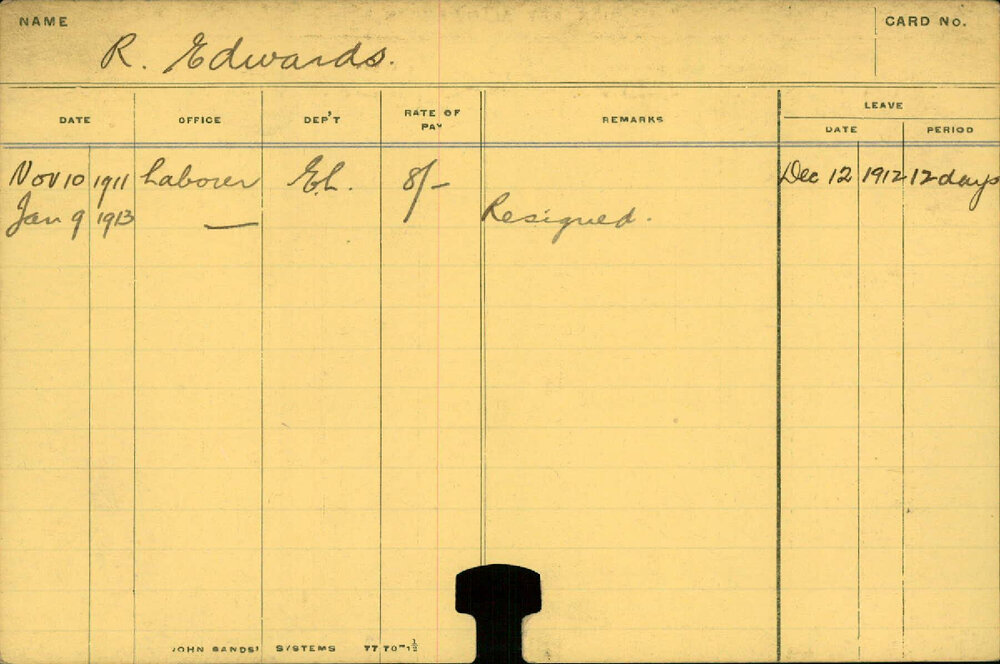 NAME
R. Edwards.
CARD No.
DATE OFFICE DEP'T RATE OF PAY REMARKS LEAVE
DATE PERIOD
Nov 10 1911 Laborer E.L. 8/- Dec 12 1912 12 days
Jan 9 1913 — Resigned.
JOHN SANDS' SYSTEMS